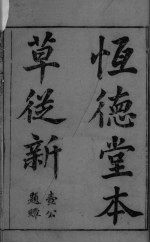 恆德堂本
草從新
壺公
題㸃